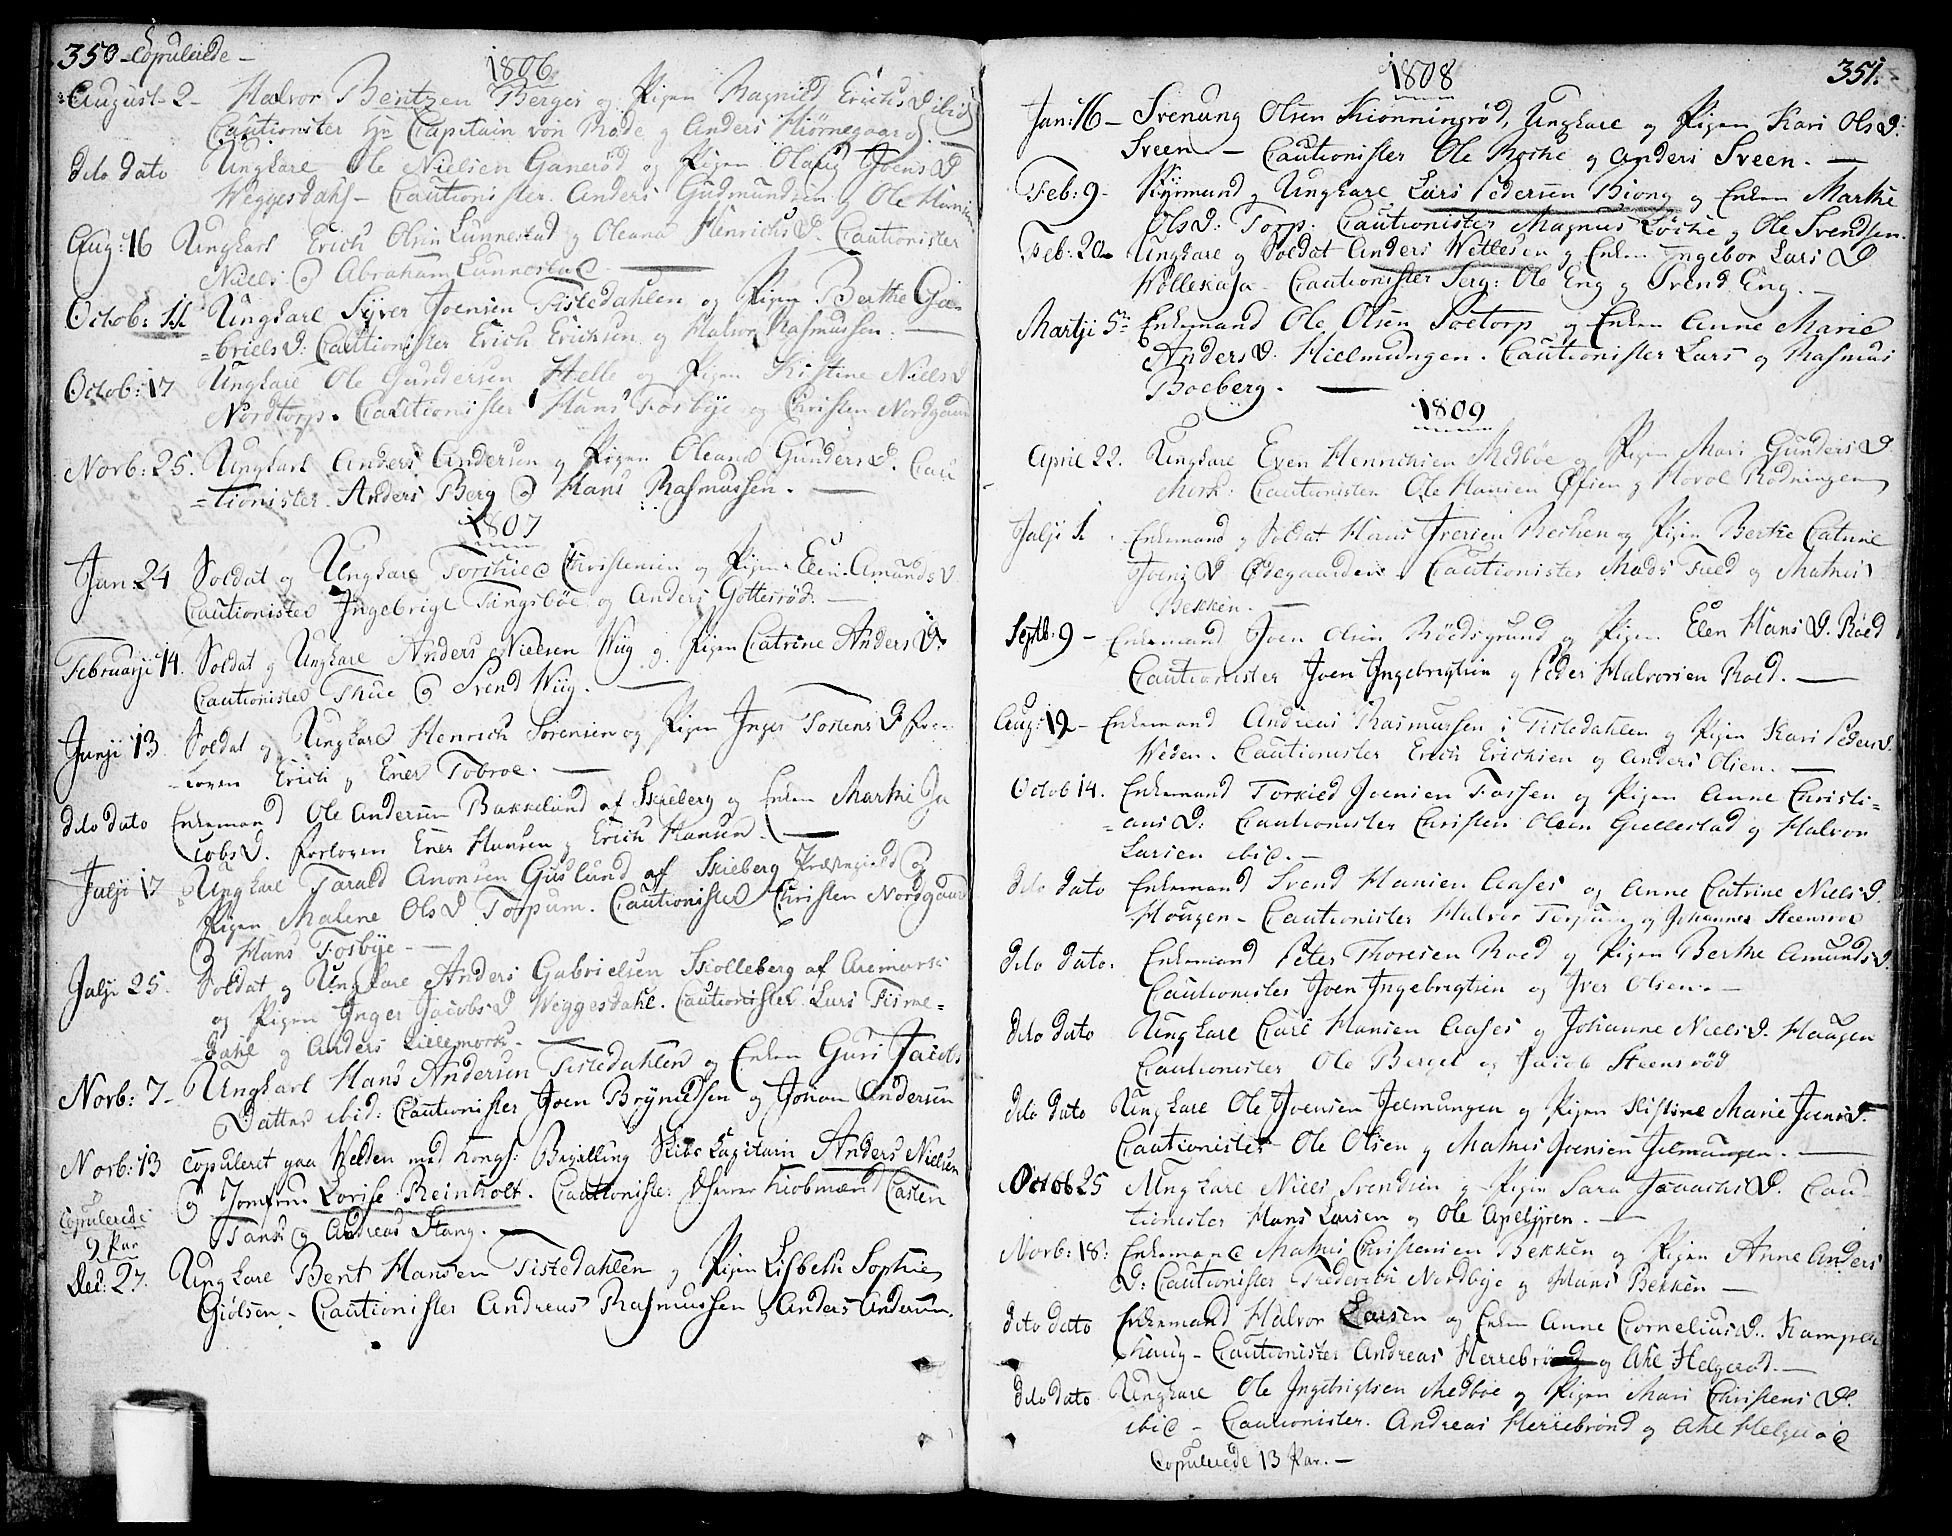 350 - Copulerede -
1806
August 2 - Halvor Bentzen Berger og Pigen Ragnild Erichs D. ibid
Cautionister Hr Capitain von Rode og Anders Hiörnegaard
dito dato Ungkarl Ole Nielsen Ganeröd og Pigen Olaug Joens D
Weggesdahl - Cautionister. Anders Gudmundsen og Ole Hansen
Aug: 16 Ungkarl Erich Olsen Lunnestad og Oleana Henrichs D. Cautionister
Niels og Abraham Lunnestad -
Octob: 11. Ungkarl Syver Joensen Tistedahlen og Pigen Berthe Ga-
=briels D: Cautionister Erich Erichsen og Halvor Rasmussen. -
Octob: 17 Ungkarl Ole Gundersen Helle og Pigen Kistine Niels D
Nordtorp. Cautionister Hans Fosbye og Christen Nordgaard
Novb: 25. Ungkarl Anders Andersen og Pigen Oleana Gunders D. Cau
=tionister. Anders Berg og Hans Rasmussen. -
1807
Jan 24 Soldat og Ungkarl Torkild Christensen og Pigen Elen Amunds D.
Cautionister Ingebrigt Tingsböe og Anders Gotteröd. -
Februarji 14. Soldat og Ungkarl Anders Nielsen Wiig og Pigen Catrine Anders D.
Cautionister Thue og Svend Wiig. -
Junji 13 Soldat og Ungkarl Henrich Sörensen og Pigen Inger Torsens D. for-
-loven Erich og Ener Tobroe. -
dito dato Enkemand Ole Andersen Bakkelund af Skieberg og Enken Marthe Ja
cobs D. forloven Ener Hansen og Erich Hansen. -
Julji 17 Ungkarl Tarald Anonsen Guslund af Skieberg Præstegield og
Pigen Malene Ols D Torpum. Cautionister Christen Nordgaard
og Hans Fosbye -
Julji 25. Soldat og Ungkarl Anders Gabrielsen Skolleberg af Aremark
og Pigen Inger Jacobs D Weggesdahl. Cautionister Lars Tisme=
-dahl og Anders Lillemork. -
Novb: 7 - Ungkarl Hans Andersen Tistedahlen og Enken Guri Jacobs
Datter ibid: Cautionister Joen Brynildsen og Johan Andersen
Novb: 13 copuleret paa Velden med Kongl: Bevilling Skibs Capitain Anders Nielsen
og Jomfrue Lovise Reinholt. Cautionister Herrer Kiöbmænd Carsten
Tank og Andreas Stang. -
Copulerede
9 Par
Dec: 27. Ungkarl Bent Hansen Tistedahlen og Pigen Lisbeth Sophie
Giölsen - Cautionister Andreas Rasmussen og Anders Andersen.
351.
1808
Jan: 16 - Svenung Olsen Kionningröd, Ungkarl og Pigen Kari Ols D:
Sveen - Cautionister Ole Roske og Anders Sveen. -
Feb: 9 - Ungkarl Lars Pedersen Biong og Enken Marthe
Ols D: Torp. Cautionister Magnus Löche og Ole Svendsen.
Feb: 20 - Ungkarl og Soldat Anders Wetlesen og Enken Ingebor Lars D
Kollekasa - Cautionister Serg: Ole Eng og Svend Eng. -
Martji 5 Enkemand Ole Olsen Soetorp og Enken Anne Marie
Anders D. Hielmungen. Cautionister Lars og Rasmus
Boeberg. -
1809
April 22. Ungkarl Even Henrichsen Medböe og Pigen Mari Gunders D.
Mork: Cautionister Ole Hansen Öfsen og Hovol Rödningen
Julji 1. Enkemand og Soldat Hans Iversen Becken og Pigen Berthe Catrine
Joens D Ödegaarden - Cautionister Mads Fald og Mathis
Bekken. -
Septb: 9 - Enkemand Joen Olsen Röedsgrund og Pigen Elen Hans D. Röed
Cautionister Joen Ingebrigtsen og Peder Halvorsen Roed. -
Aug: 12 - Enkemand Andreas Rasmussen i Tistedahlen og Pigen Kari Peders D.
Weden. Cautionister Erich Erichsen og Anders Olsen. -
Octob 14. Enkemand Torkied Joensen Fossen og Pigen Anne Christi=
=ans D: Cautionister Christen Olsen Giellestad og Halvor
Larsen ibid. -
dito dato Enkemand Svend Hansen Aases og Anne Catrine Niels D.
Hougen - Cautionister Halvor Torpum og Johannes Steensröd
dito dato. Enkemand Peter Thoresen Roed og Pigen Berthe Amunds D.
Cautionister Joen Ingebrigtsen og Iver Olsen. -
dito dato Ungkarl Carl Hansen Aases og Johanne Niels D. Haugen
Cautionister Ole Berger og Jacob Steensröd
dito dato Ungkarl Ole Joensen Jelmungen og Pigen Kistine Marie Joens D.
Cautionister Ole Olsen og Mathis Joensen Jelmungen. -
Octob 25 Ungkarl Niels Svendsen og Pigen Sara Isaachs D. Cau-
tionister Hans Larsen og Ole Apelsjren. -
Novb: 18. Enkemand Mathis Christensen Bekken og Pigen Anne Anders
D: Cautionister Frederich Nordbye og Hans Bekken -
dito dato Enkemand Halvor Larsen og Enken Anne Cornelius D. Kampe
haug - Cautionister Andreas Herrebrö og Ahl Helgeröd. -
dito dato Ungkarl Ole Ingebrigtsen Medböe og Pigen Mari Christens D.
ibid - Cautionister. Andreas Herrebrönd og Ahl Helgeröd
Copulerede 13 Par. -